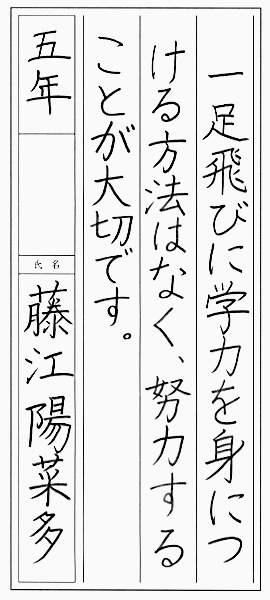 一足飛びに学力を身につ
ける方法はなく、努力する
ことが大切です。
五年
氏名
藤江陽菜多